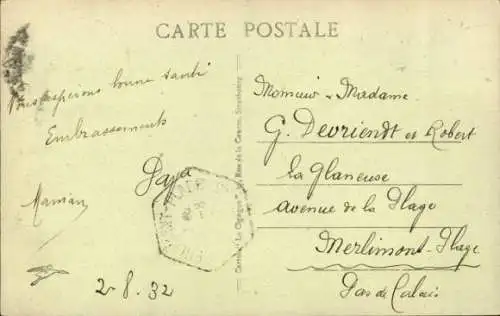 CARTE POSTALE
Nous espérons bonne santé
Embrassements
Papa
Maman
2.8.32
Monsieur - Madame
G. Devriendt et Robert
La Glaneuse
avenue de la Plage
Merlimont-Plage
Pas de Calais